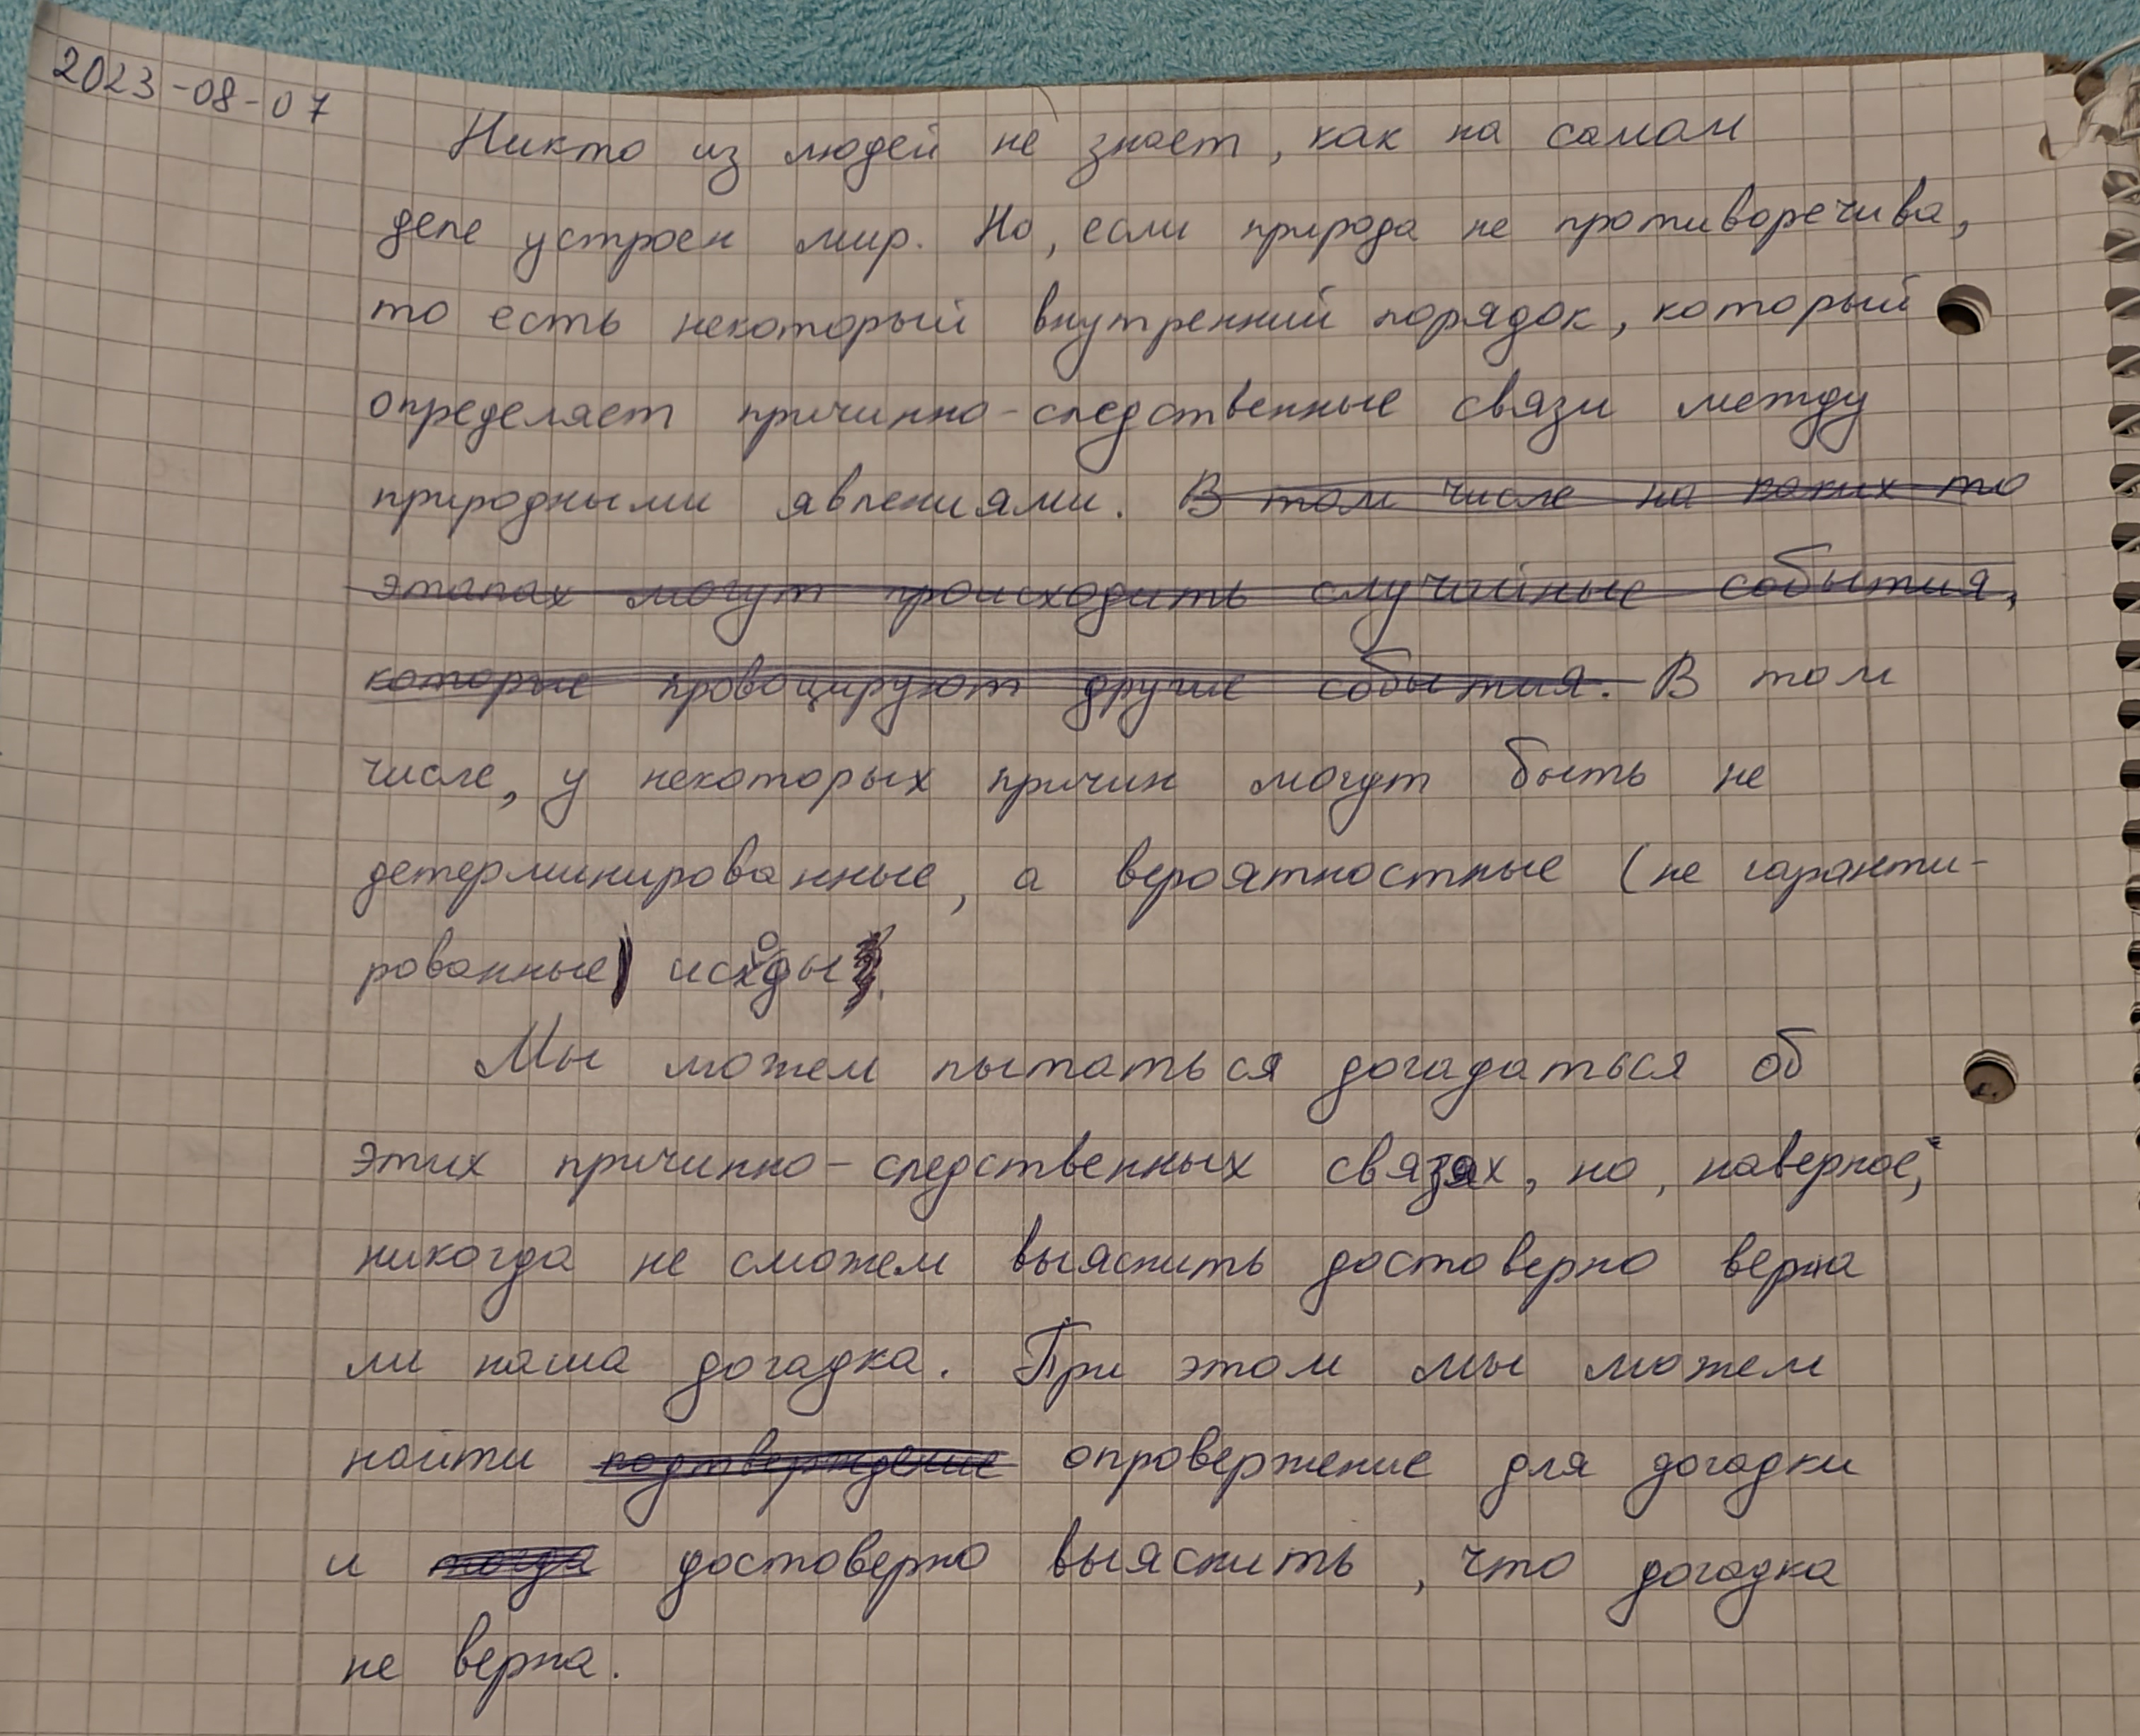 2023-08-07
Никто из людей не знает, как на самом
деле устроен мир. Но, если природа не противоречива,
то есть некоторый внутренний порядок, который
определяет причинно-следственные связи между
природными явлениями. В том числе на каких то
этапах могут происходить случайные события,
которые провоцируют другие события. В том
числе, у некоторых причин могут быть не
детерминированные, а вероятностные (не гаранти-
рованные) исходы.
Мы можем пытаться догадаться об
этих причинно-следственных связях, но, наверное,
никогда не сможем выяснить достоверно верна
ли наша догадка. При этом мы можем
найти подтверждение опровержение для догадки
и тогда достоверно выяснить, что догадка
не верна.